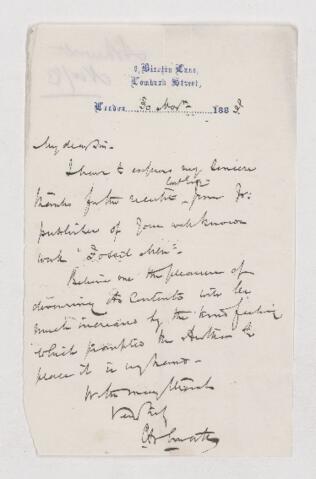 9, Birchin Lane,
Lombard Street,
London 30 Novr 1883.
My dear Sir -
I have to express my sincere
last Eveg
thanks for the receipt - from yr:
publisher of your well known
work "Fossil Men" -
Believe me the pleasure of
devouring its contents will be
much increased by the kind feeling
which prompted the Author to
place it in my hand -
With many thanks
Very truly